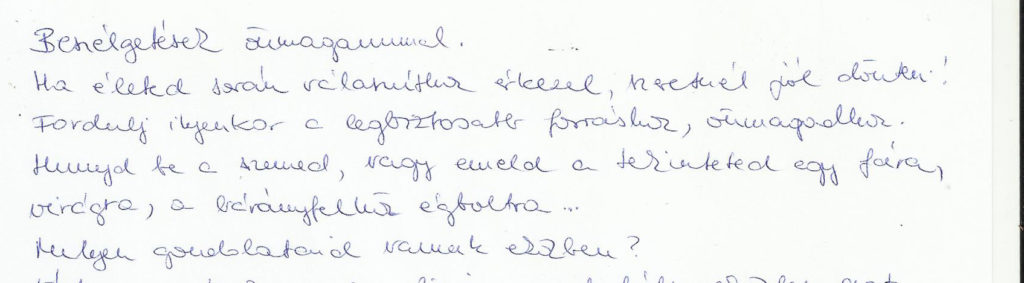 Beszélgetések önmagammal.
Ha életed során válaszúthoz érkezel, szeretnél jól dönteni!
Fordulj ilyenkor a legbiztosabb forráshoz, önmagadhoz.
Hunyd be a szemed, vagy emeld a tekinteted egy fára,
virágra, a bárányfelhős égboltra...
Milyen gondolataid vannak eközben?